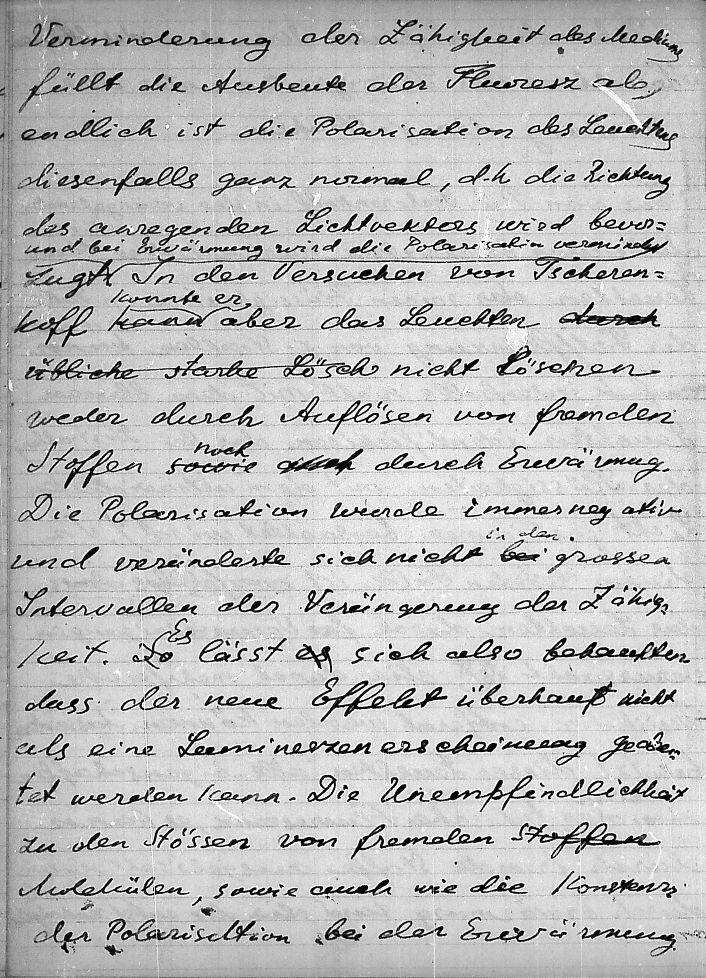 Verminderung der Zähigkeit des Mediums
füllt die Ausbeute der Fluoresz ab,
endlich ist die Polarisation des Leuchtens
diesenfalls ganz normal, d.h die Richtung
des anregenden Lichtvektors wird bevor=
und bei Erwärmung wird die Polarisation vermindert
zugt. In den Versuchen von Tscheren=
konnte er
koff kann aber das Leuchten durch
übliche starke Lösch nicht Löschen
weder durch Auflösen von fremden
noch
Stoffen sowie auch durch Erwärmung.
Die Polarisation wurde immer negativ
in den
und veränderte sich nicht bei grossen
Intervallen der Verängerung der Zähig=
Es
keit. So lässt es sich also behaupten
dass der neue Effekt überhaupt nicht
als eine Lumineszenerscheinung gedeu=
tet werden kann. Die Unempfindlichkeit
zu den Stössen von fremden Stoffen
Molekülen, sowie auch wie die Konstenz
der Polarisation bei der Erwärmung